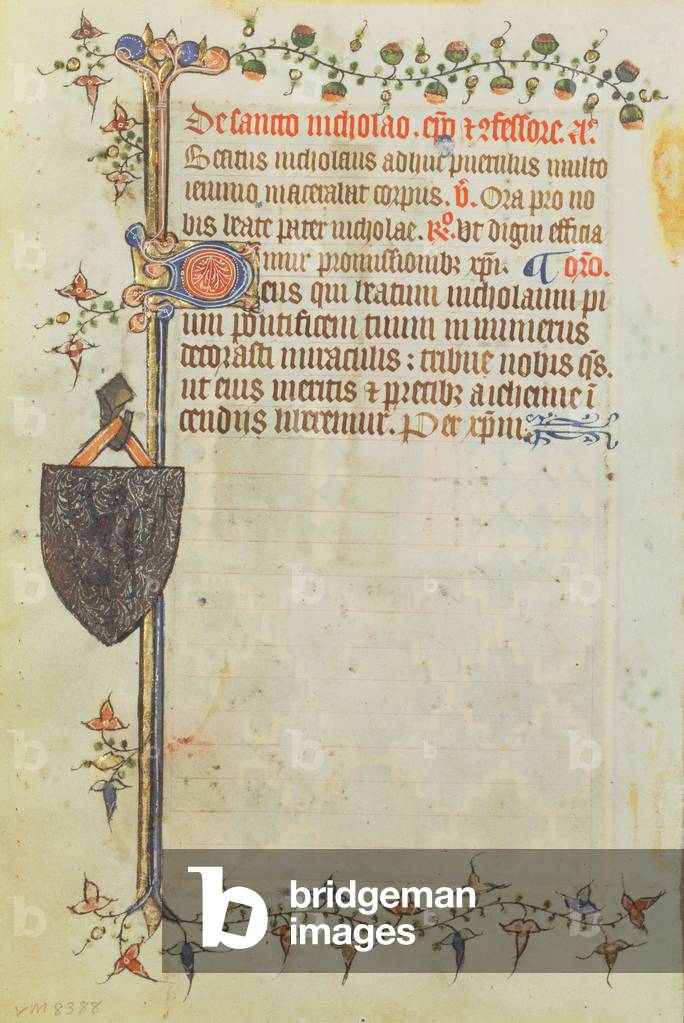 De sancto nicholao. ep̄o ⁊ ꝯfessore. A͞.
Beatus nicholaus adhuc puerulus multo
ieiunio macerabat corpus. V̄. Ora pro no
bis beate pater nicholae. R̄o. Vt digni efficia
mur promissionibꝫ xp̄i. Oro̅.
Deus qui beatum nicholaum pi
um pontificem tuum innumeris
decorasti miraculis : tribue nobis q̄s.
ut eius meritis ⁊ precibꝫ a iehenne ī
cendijs liberemur. Per xp̄m.
bridgeman
images
VM 8388